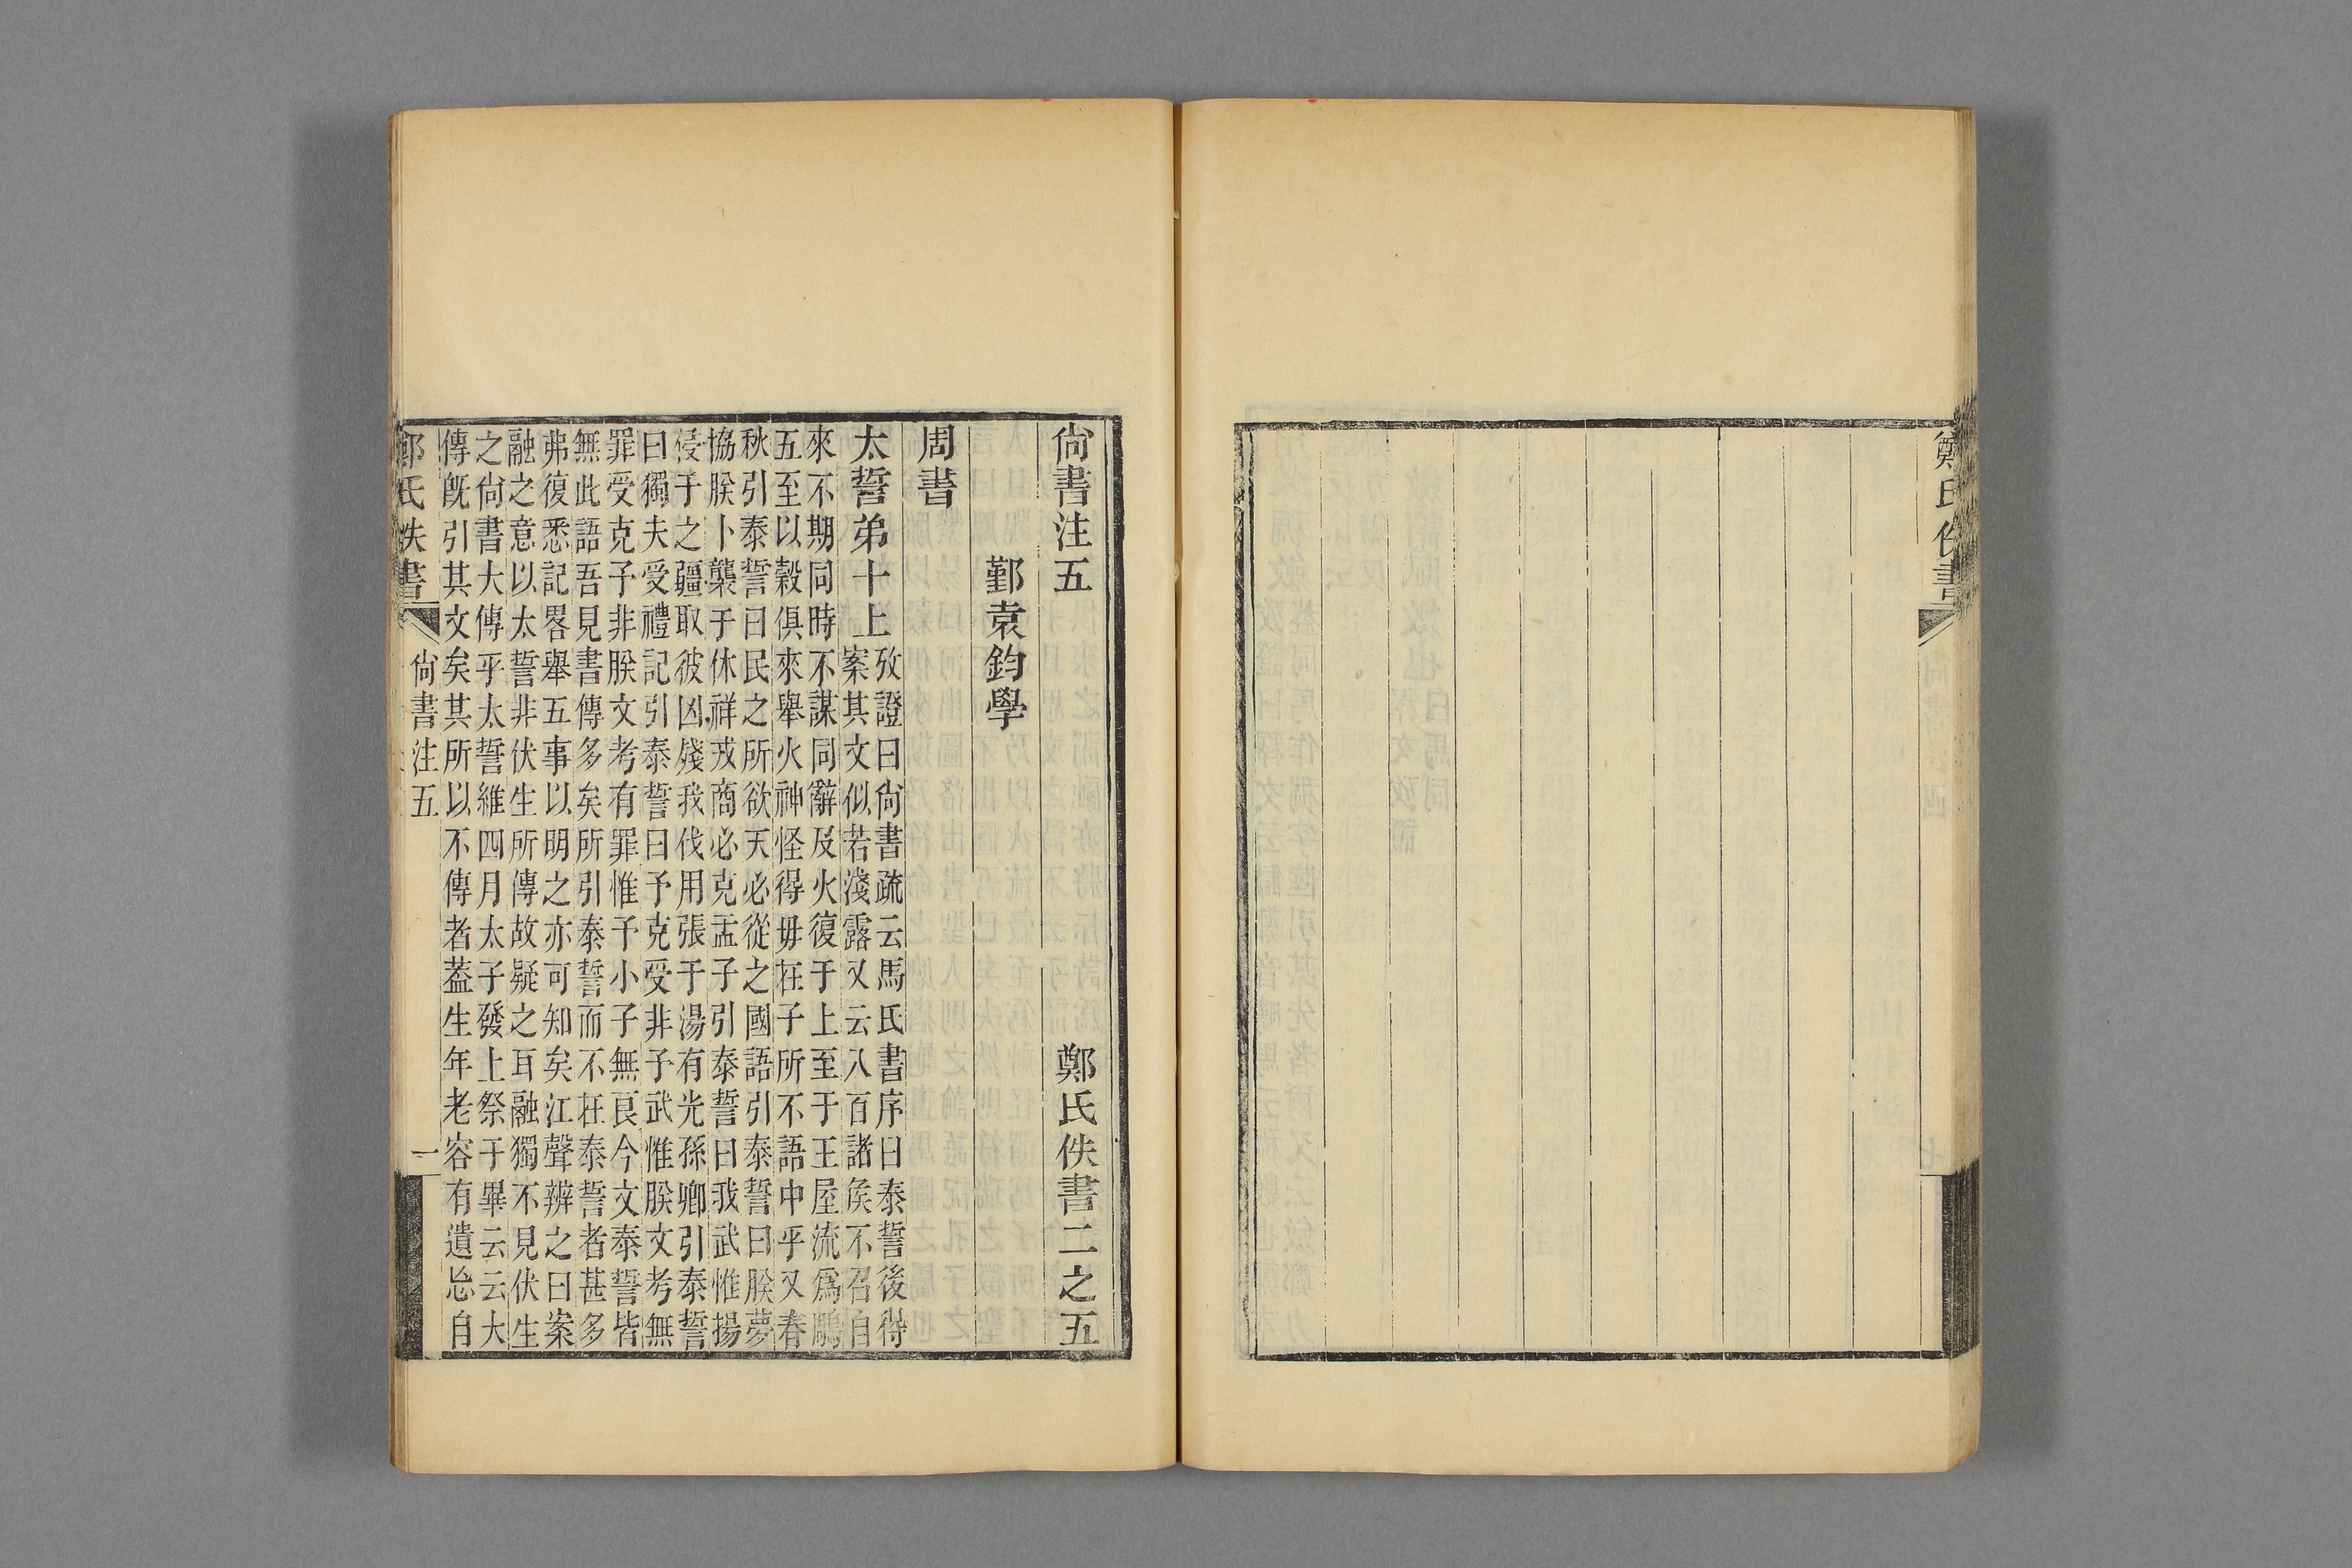 鄭氏佚書
尙書注五　鄭氏佚書二之五
鄞袁鈞學
周書
太誓弟十上
攷證曰尙書疏云馬氏書序曰泰誓後得
案其文似若淺露又云八百諸侯不召自
來不期同時不謀同辭及火復于上至于王屋流爲鵰
五至以穀俱來舉火神怪得毋在子所不語中乎又春
秋引泰誓曰民之所欲天必從之國語引泰誓曰朕夢
協朕卜襲于休祥戎商必克孟子引泰誓曰我武惟揚
侵于之疆取彼凶殘我伐用張于湯有光孫卿引泰誓
曰獨夫受禮記引泰誓曰予克受非予武惟朕文考無
罪受克予非朕文考有罪惟予小子無良今文泰誓皆
無此語吾見書傳多矣所引泰誓而不在泰誓者甚多
弗復悉記畧舉五事以明之亦可知矣江聲辨之曰案
融之意以太誓非伏生所傳故疑之耳融獨不見伏生
之尙書大傳乎太誓維四月太子發上祭于畢云云大
傳旣引其文矣其所以不傳者葢生年老容有遺忘自
鄭氏佚書
尙書注五
一